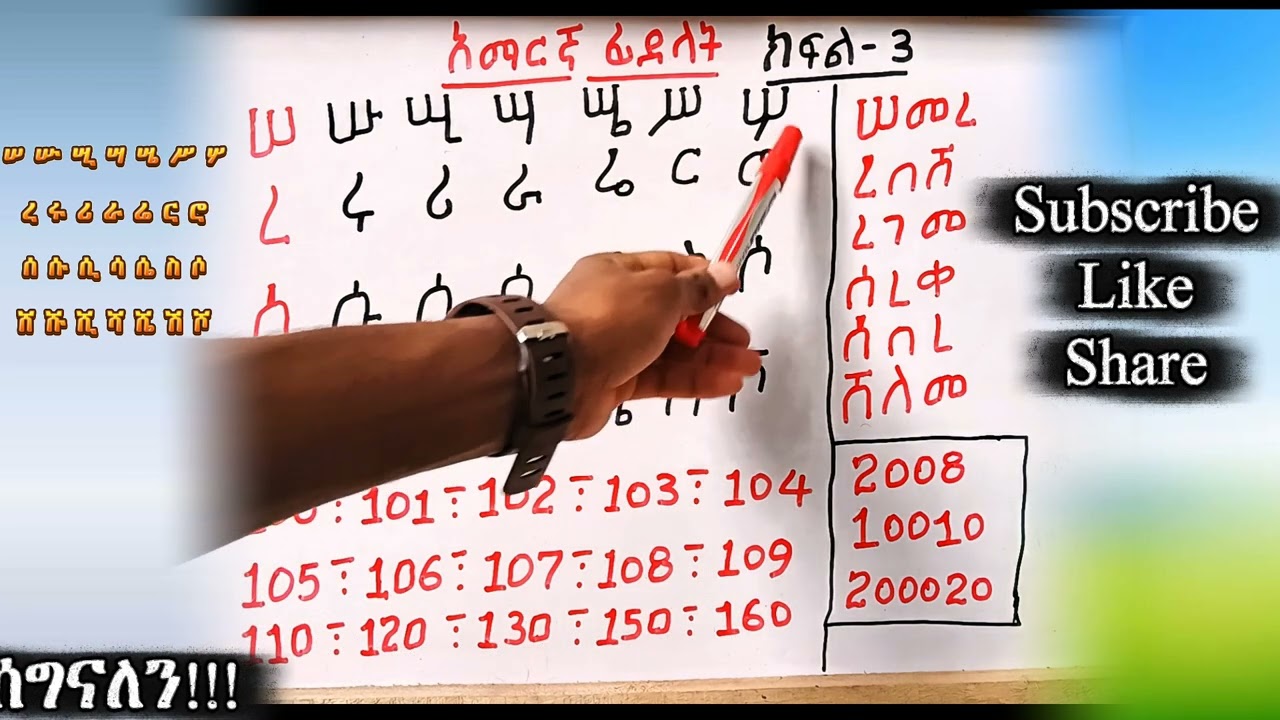 አማርኛ ፊደላት ክፍል-3
ሠ ሡ ሢ ሣ ሤ ሥ ሦ
ረ ሩ ሪ ራ ሬ ር ሮ
ሰ ሱ ሲ ሳ ሶ
101 ፥ 102 ፥ 103 ፥ 104
105 ፥ 106 ፥ 107 ፥ 108 ፥ 109
110 ፥ 120 ፥ 130 ፥ 150 ፥ 160
ሠመረ
ረበሸ
ረገመ
ሰረቀ
ሰበረ
ሸለመ
2008
10010
200020
ሠ ሡ ሢ ሣ ሤ ሥ ሦ
ረ ሩ ሪ ራ ሬ ር ሮ
ሰ ሱ ሲ ሳ ሴ ስ ሶ
ሸ ሹ ሺ ሻ ሼ ሽ ሾ
Subscribe
Like
Share